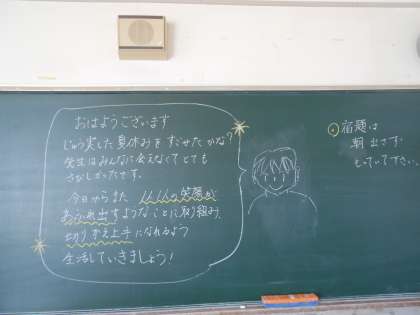 おはようございます
じゅう実した夏休みをすごせたかな?
先生はみんなに会えなくてとても
さみしかったです。
今日からまた 人人人の笑顔が
あふれ出すようなことに取り組み、
切りかえ上手になれるよう
生活していきましょう!
宿題は
朝出さず
もっていて下さい。